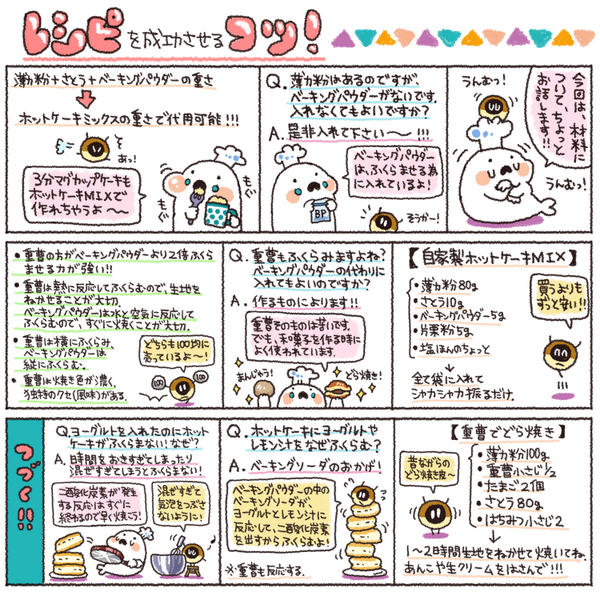 レシピを成功させるコツ!
今回は、材料に
ついて、ちょっと
お話します!!
うんむっ!
うんむっ!
Q. 薄力粉はあるのですが、
ベーキングパウダーがないです。
入れなくてもよいですか?
A. 是非入れて下さい〜!!!
ベーキングパウダー
は、ふくらませる為
に入れているよ!
BP
そうかー!
薄力粉+さとう+ベーキングパウダーの重さ
ホットケーキミックスの重さで代用可能!!!
あっ!
3分マグカップケーキも
ホットケーキMIXで
作れちゃうよ〜〜
もぐ
もぐ
【自家製ホットケーキMIX】
・薄力粉80g
・さとう10g
・ベーキングパウダー5g
・片栗粉5g
・塩ほんのちょっと
買うよりも
ずっと安い!!
全て袋に入れて
シャカシャカ振るだけ。
Q. 重曹もふくらみますよね?
ベーキングパウダーの代わりに
入れてもよいですか?
A. 作るものによります!!
重曹そのものは苦いです。
でも、和菓子を作る時に
よく使われています。
まんじゅう!
どら焼き!
・重曹の方がベーキングパウダーより2倍ふくら
ませる力が強い!!
・重曹は熱に反応してふくらむので、生地を
ねかせることが大切。
ベーキングパウダーは水と空気に反応して
ふくらむので、すぐに焼くことが大切。
・重曹は横にふくらみ、
ベーキングパウダーは
縦にふくらむ。
・重曹は焼き色が濃く、
独特のクセ(風味)がある。
どちらも100均に
売っているよ〜!
100
100
【重曹でどら焼き】
・薄力粉100g
・重曹小さじ1/2
・たまご2個
・さとう80g
・はちみつ小さじ2
昔ながらの
どら焼き皮〜
1〜2時間生地をねかせて焼いてね。
あんこや生クリームをはさんで!!!
Q. ホットケーキにヨーグルトや
レモン汁をなぜふくらむ?
A. ベーキングソーダのおかげ!
ベーキングパウダーの中の
ベーキングソーダが、
ヨーグルトとレモン汁に
反応して、二酸化炭素
を出すからふくらむよ!
※重曹も反応する。
Q.ヨーグルトを入れたのにホット
ケーキがふくらまない!なぜ?
A. 時間をおきすぎてしまったり
混ぜすぎてしまうとふくらまない!
二酸化炭素が発生
する反応はすぐに
終わるので早く焼こう!
混ぜすぎて
気泡をつぶさ
ないように!
つづく!!